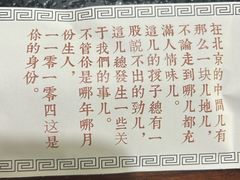 在北京的中間儿有
那么一块儿地儿，
不論走到哪儿都充
滿人情味儿。
這儿的孩子總有一
股説不出的勁儿，
這儿總發生一些关
于我們的事儿。
不管你是哪年哪月
份生人，
一一〇一〇四這是
你的身份。